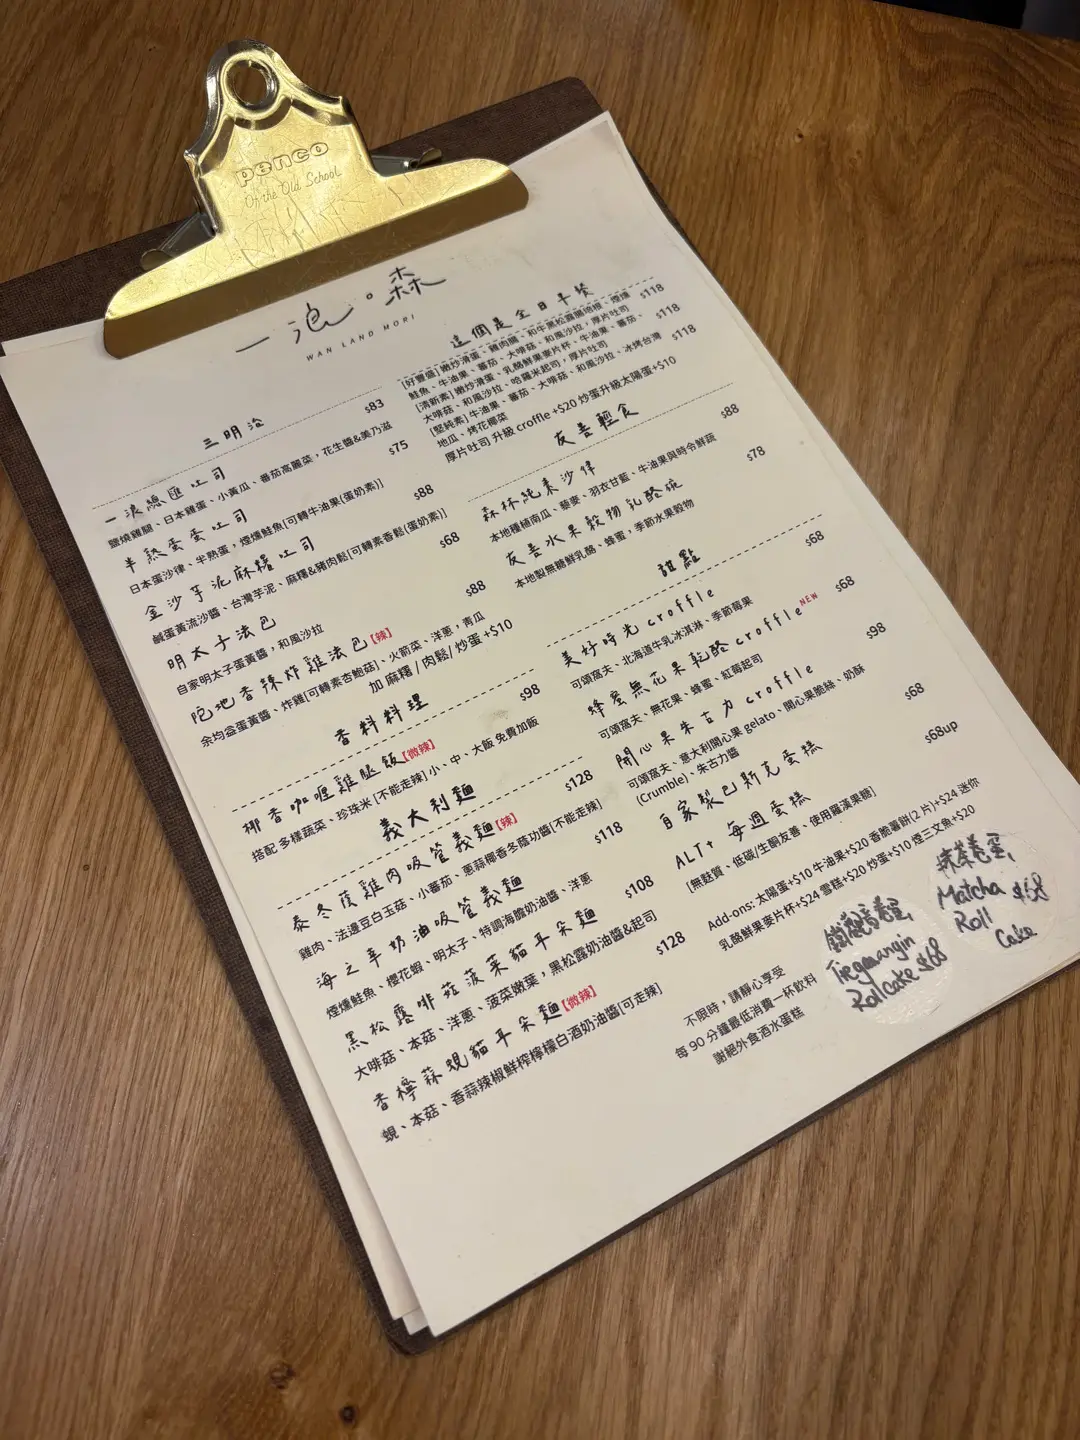 penco
Of the Old School
一浪。森
WAN LAND MORI
三明治
一浪總匯吐司 $83
鹽燒雞腿、日本雞蛋、小黃瓜、番茄高麗菜，花生醬&美乃滋
半熟蛋蛋吐司 $75
日本蛋沙律、半熟蛋，煙燻鮭魚[可轉牛油果(蛋奶素)]
金沙芋泥麻糬吐司 $88
鹹蛋黃流沙醬、台灣芋泥、麻糬&豬肉鬆[可轉素香鬆(蛋奶素)]
明太子法巴 $68
自家明太子蛋黃醬，和風沙拉
陀地香辣炸雞法巴[辣] $88
余均益蛋黃醬、炸雞[可轉素杏鮑菇]、火箭菜、洋蔥，青瓜
加 麻糬 / 肉鬆/ 炒蛋 +$10
香料料理
椰香咖喱雞腿飯[微辣] $98
搭配 多樣蔬菜、珍珠米 [不能走辣] 小、中、大飯 免費加飯
義大利麵
泰冬蔭雞肉吸管義麵[辣] $128
雞肉、法邊豆白玉菇、小番茄、蔥蒜椰香冬蔭功醬[不能走辣]
海之幸奶油吸管義麵 $118
煙燻鮭魚、櫻花蝦、明太子、特調海膽奶油醬、洋蔥
黑松露啡菇菠菜貓耳朵麵 $108
大啡菇、本菇、洋蔥、菠菜嫩葉，黑松露奶油醬&起司
香檸蒜蜆貓耳朵麵[微辣] $128
蜆、本菇、香蒜辣椒鮮榨檸檬白酒奶油醬[可走辣]
這個是全日早餐
[好豐盛] 嫩炒滑蛋、雞肉腸、和牛黑松露風琴培根、煙燻 $118
鮭魚、牛油果、蕃茄、大啡菇、和風沙拉，厚片吐司
[清新素] 嫩炒滑蛋、乳酪鮮果麥片杯、牛油果、蕃茄、 $118
大啡菇、和風沙拉、哈羅米起司，厚片吐司
[堅純素] 牛油果、蕃茄、大啡菇、和風沙拉、冰烤台灣 $118
地瓜、烤花椰菜
厚片吐司 升級 croffle +$20 炒蛋升級太陽蛋+$10
友善輕食
森林純素沙律 $88
本地種植南瓜、藜麥、羽衣甘藍、牛油果與時令鮮蔬
友善水果穀物乳酪碗 $78
本地製無糖鮮乳酪、蜂蜜，季節水果穀物
甜點
美好時光croffle $68
可頌窩夫、北海道牛乳冰淇淋、季節莓果
蜂蜜無花果乾酪croffle NEW $68
可頌窩夫、無花果、蜂蜜、紅莓起司
開心果朱古力croffle $98
可頌窩夫、意大利開心果 gelato、開心果脆絲、奶酥
(Crumble)、朱古力醬
自家製巴斯克蛋糕 $68
ALT+ 每週蛋糕 $68up
[無麩質、低碳/生酮友善、使用羅漢果糖]
Add-ons: 太陽蛋+$10 牛油果+$20 香脆薯餅(2 片)+$24 迷你
乳酪鮮果麥片杯+$24 雪糕+$20 炒蛋+$10 煙三文魚+$20
不限時，請靜心享受
每 90 分鐘最低消費一杯飲料
謝絕外食酒水蛋糕
鐵觀音卷蛋
Tieguanyin
Roll cake $68
抹茶卷蛋
Matcha $68
Roll
Cake